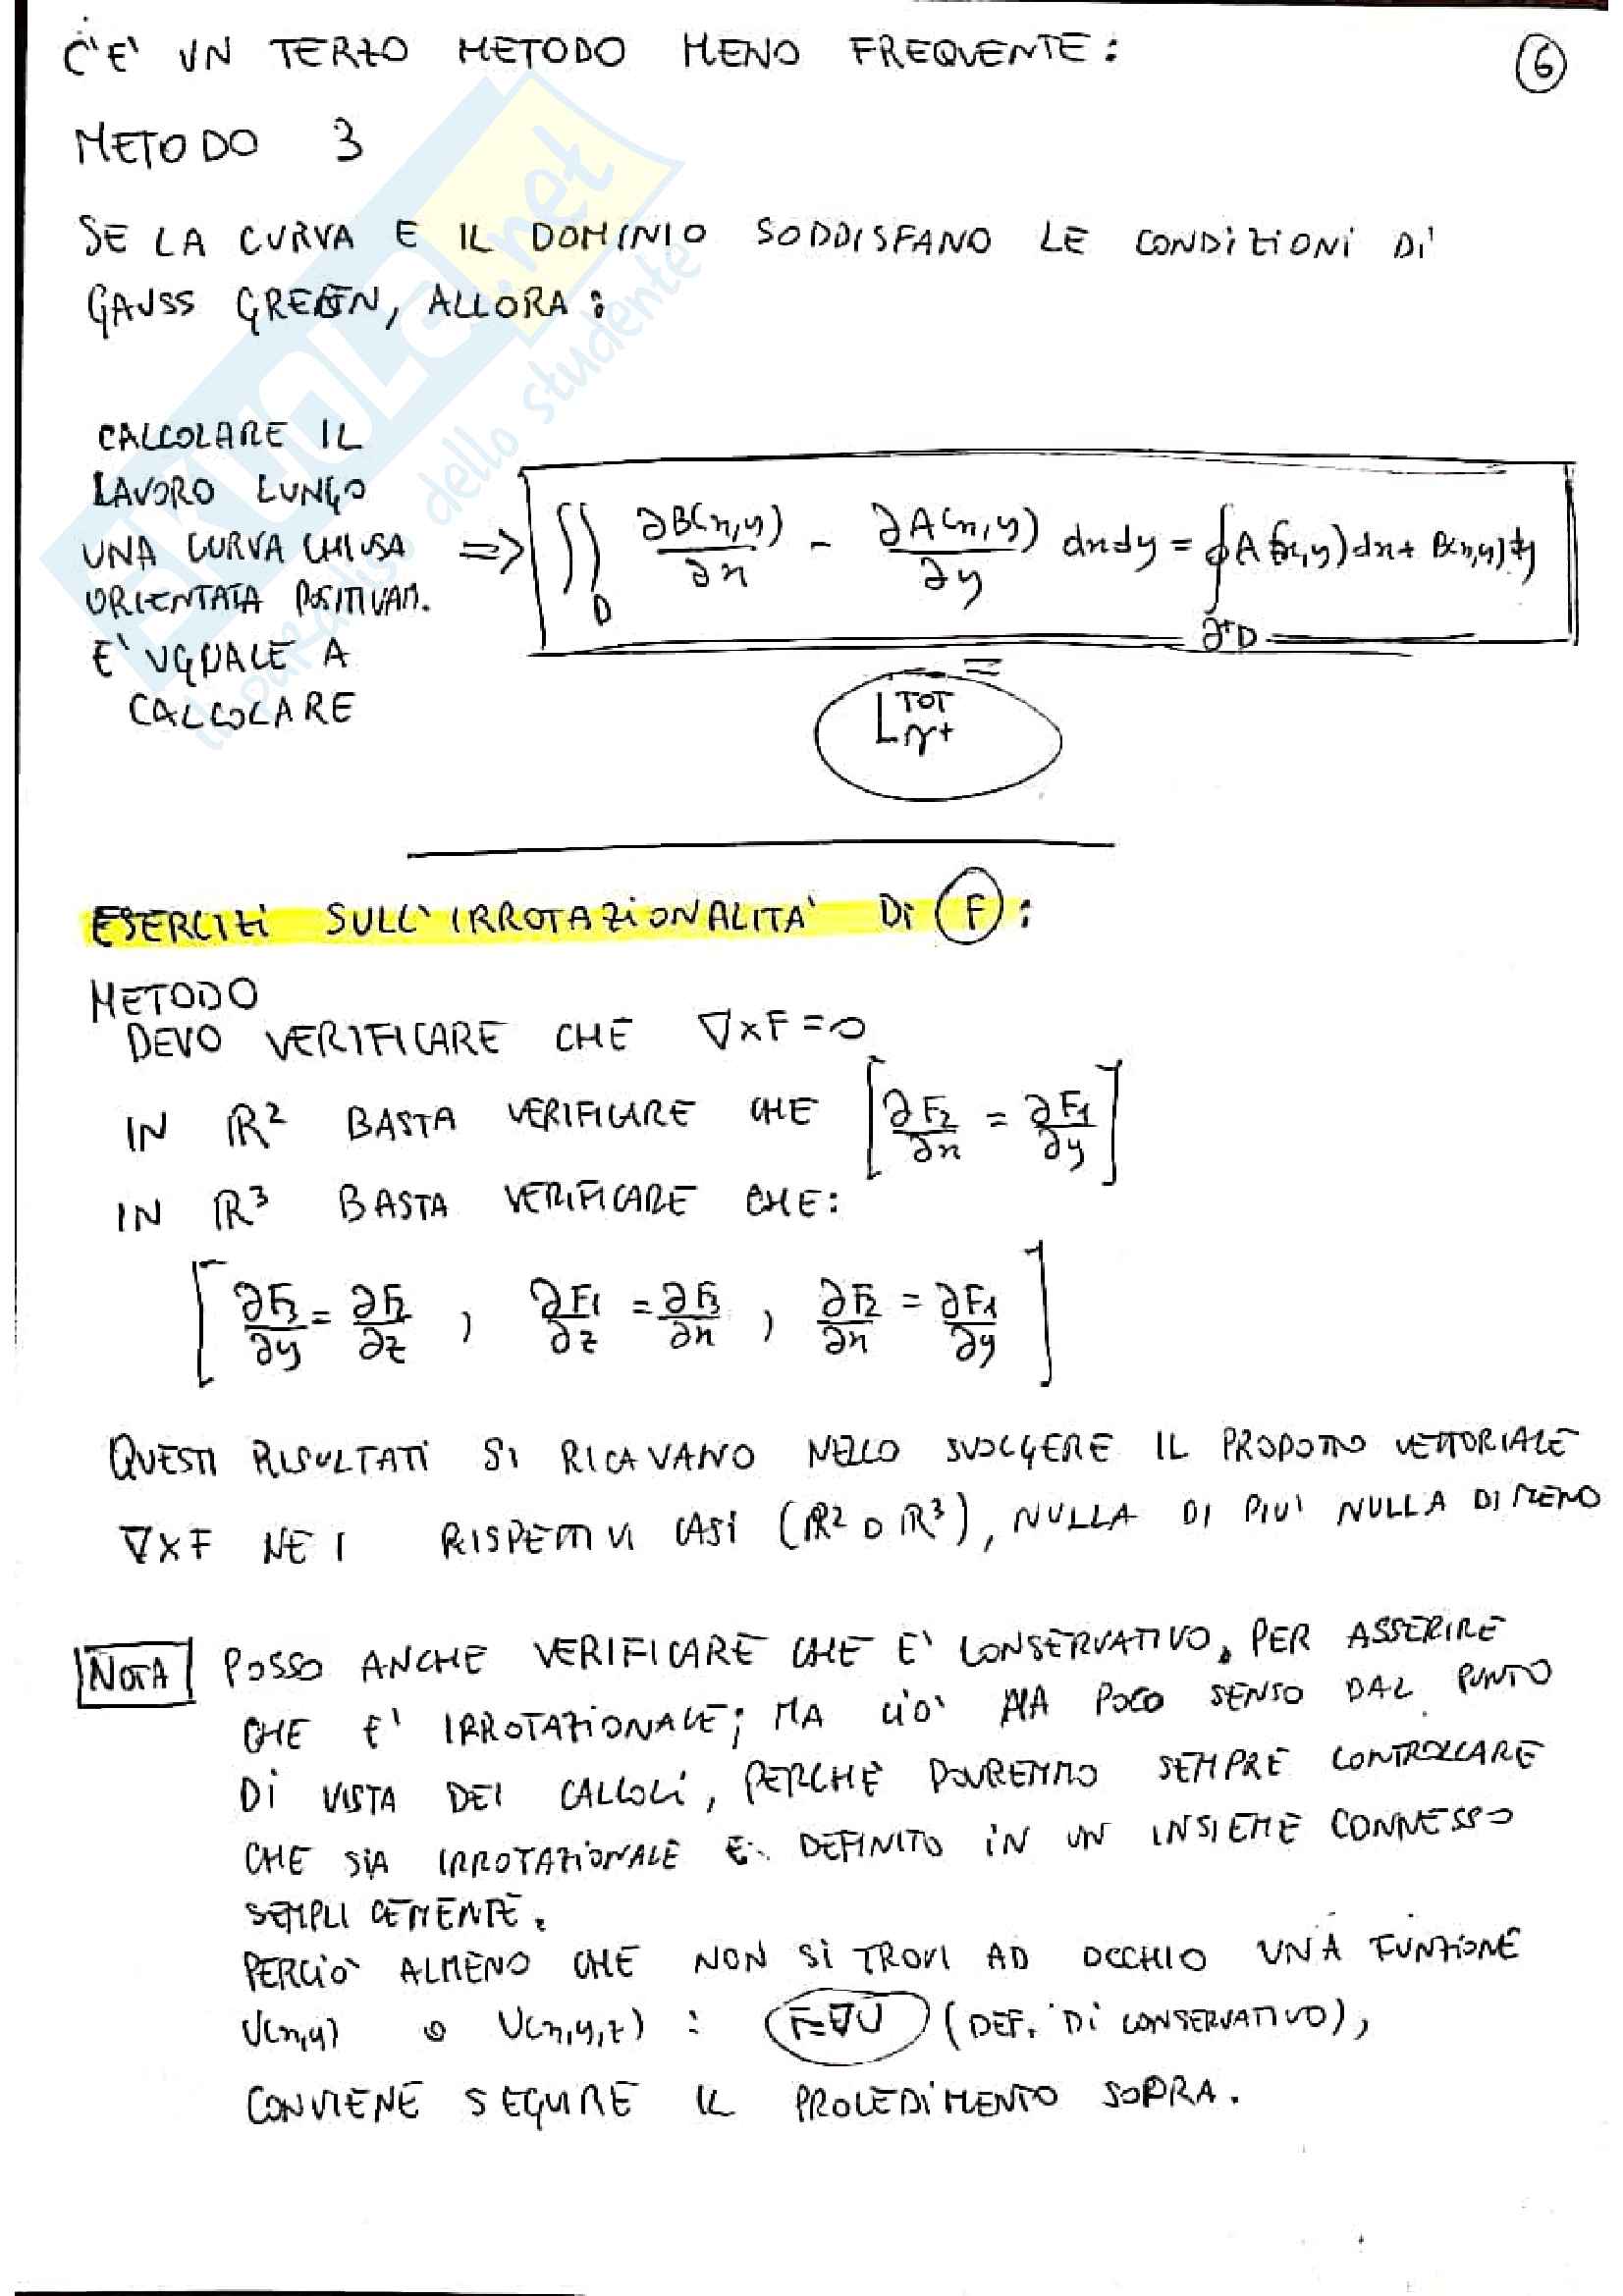 C'E' UN TERZO METODO MENO FREQUENTE:
6
METODO 3
SE LA CURVA E IL DOMINIO SODDISFANO LE CONDIZIONI DI
GAUSS GREEN, ALLORA:
CALCOLARE IL
LAVORO LUNGO
UNA CURVA CHIUSA
ORIENTATA POSITIVAM.
E' UGUALE A
CALCOLARE
=> ∬_D ∂B(x,y)/∂x - ∂A(x,y)/∂y dxdy = ∮_∂⁺D A(x,y)dx + B(x,y)dy
=
L^TOT_γ+
ESERCIZI SULL'IRROTAZIONALITA' DI F:
METODO
DEVO VERIFICARE CHE ∇×F=0
IN ℝ² BASTA VERIFICARE CHE [∂F₂/∂x = ∂F₁/∂y]
IN ℝ³ BASTA VERIFICARE CHE:
[∂F₃/∂y = ∂F₂/∂z , ∂F₁/∂z = ∂F₃/∂x , ∂F₂/∂x = ∂F₁/∂y]
QUESTI RISULTATI SI RICAVANO NELLO SVOLGERE IL PRODOTTO VETTORIALE
∇×F NEI RISPETTIVI CASI (ℝ² O ℝ³), NULLA DI PIU' NULLA DI MENO
NOTA POSSO ANCHE VERIFICARE CHE E' CONSERVATIVO, PER ASSERIRE
CHE E' IRROTAZIONALE; MA CIO' HA POCO SENSO DAL PUNTO
DI VISTA DEI CALCOLI, PERCHE' DOVREMMO SEMPRE CONTROLLARE
CHE SIA IRROTAZIONALE E DEFINITO IN UN INSIEME CONNESSO
SEMPLICEMENTE.
PERCIO' ALMENO CHE NON SI TROVI AD OCCHIO UNA FUNZIONE
U(x,y) O U(x,y,z) : F=∇U (DEF. DI CONSERVATIVO),
CONVIENE SEGUIRE IL PROCEDIMENTO SOPRA.
SKUOLA.net
il paradiso dello studente